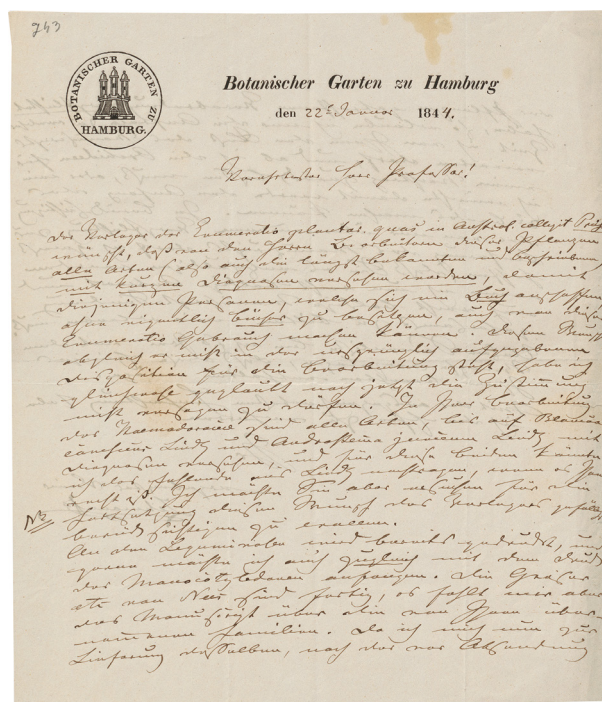 743
BOTANISCHER GARTEN ZU HAMBURG.
Botanischer Garten zu Hamburg
den 22t Januar 1844.
Verehrtester Herr Professor!
Der Verleger der Enumeratio plantar. quas in Austral. collegit Preiss
wünscht, daß von den Herrn Bearbeitern dieser Pflanzen
alle Arten (also auch die längst bekannten und beschriebenen
mit kurzen Diagnosen versehen werden, damit
diejenigen Personen, welche sich ein Buch anschaffen
ohne eigentlich Bücher zu besitzen, auch von dieser
Enumeratio Gebrauch machen können. Diesen Wunsch
obgleich er nicht in der ursprünglich aufgegebenen
Disposition für die Bearbeitung steht, habe ich
geglaubt noch jetzt die Zustimmung
nicht versagen zu dürfen. In Ihrer Bearbeitung
der Haemodoraceae sind alle Arten, bis auf Blancoa
canescens Lindl und Androstemma junceum Lindl mit
Diagnosen versehen, und für diese beiden könnte
ich das Fehlende aus Lindl nachtragen, wenn es Ihnen
recht ist. Ich möchte Sie aber ersuchen für die
NB Fortsetzung diesen Wunsch des Verlegers gefälligst
berücksichtigen zu wollen.
An den Leguminosen wird bereits gedruckt, und
gerne möchte ich auch zugleich mit dem Druck
der Monocotyledonen anfangen. Die Gräser
etc von Nees sind fertig, es fehlt mir aber
das Manuscript über die von Ihnen über-
nommenen Familien. Da ich mich nun zur
Lieferung desselben, noch vor der Absendung